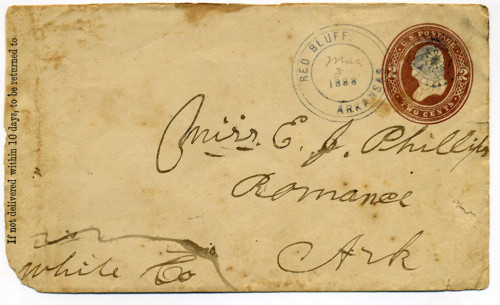 If not delivered within 10 days, to be returned to
RED BLUFF.
Mar
3
1888
ARKANSAS
U.S. POSTAGE
TWO CENTS
2
2
Miss. E. J. Phillips
Romance
Ark
White Co